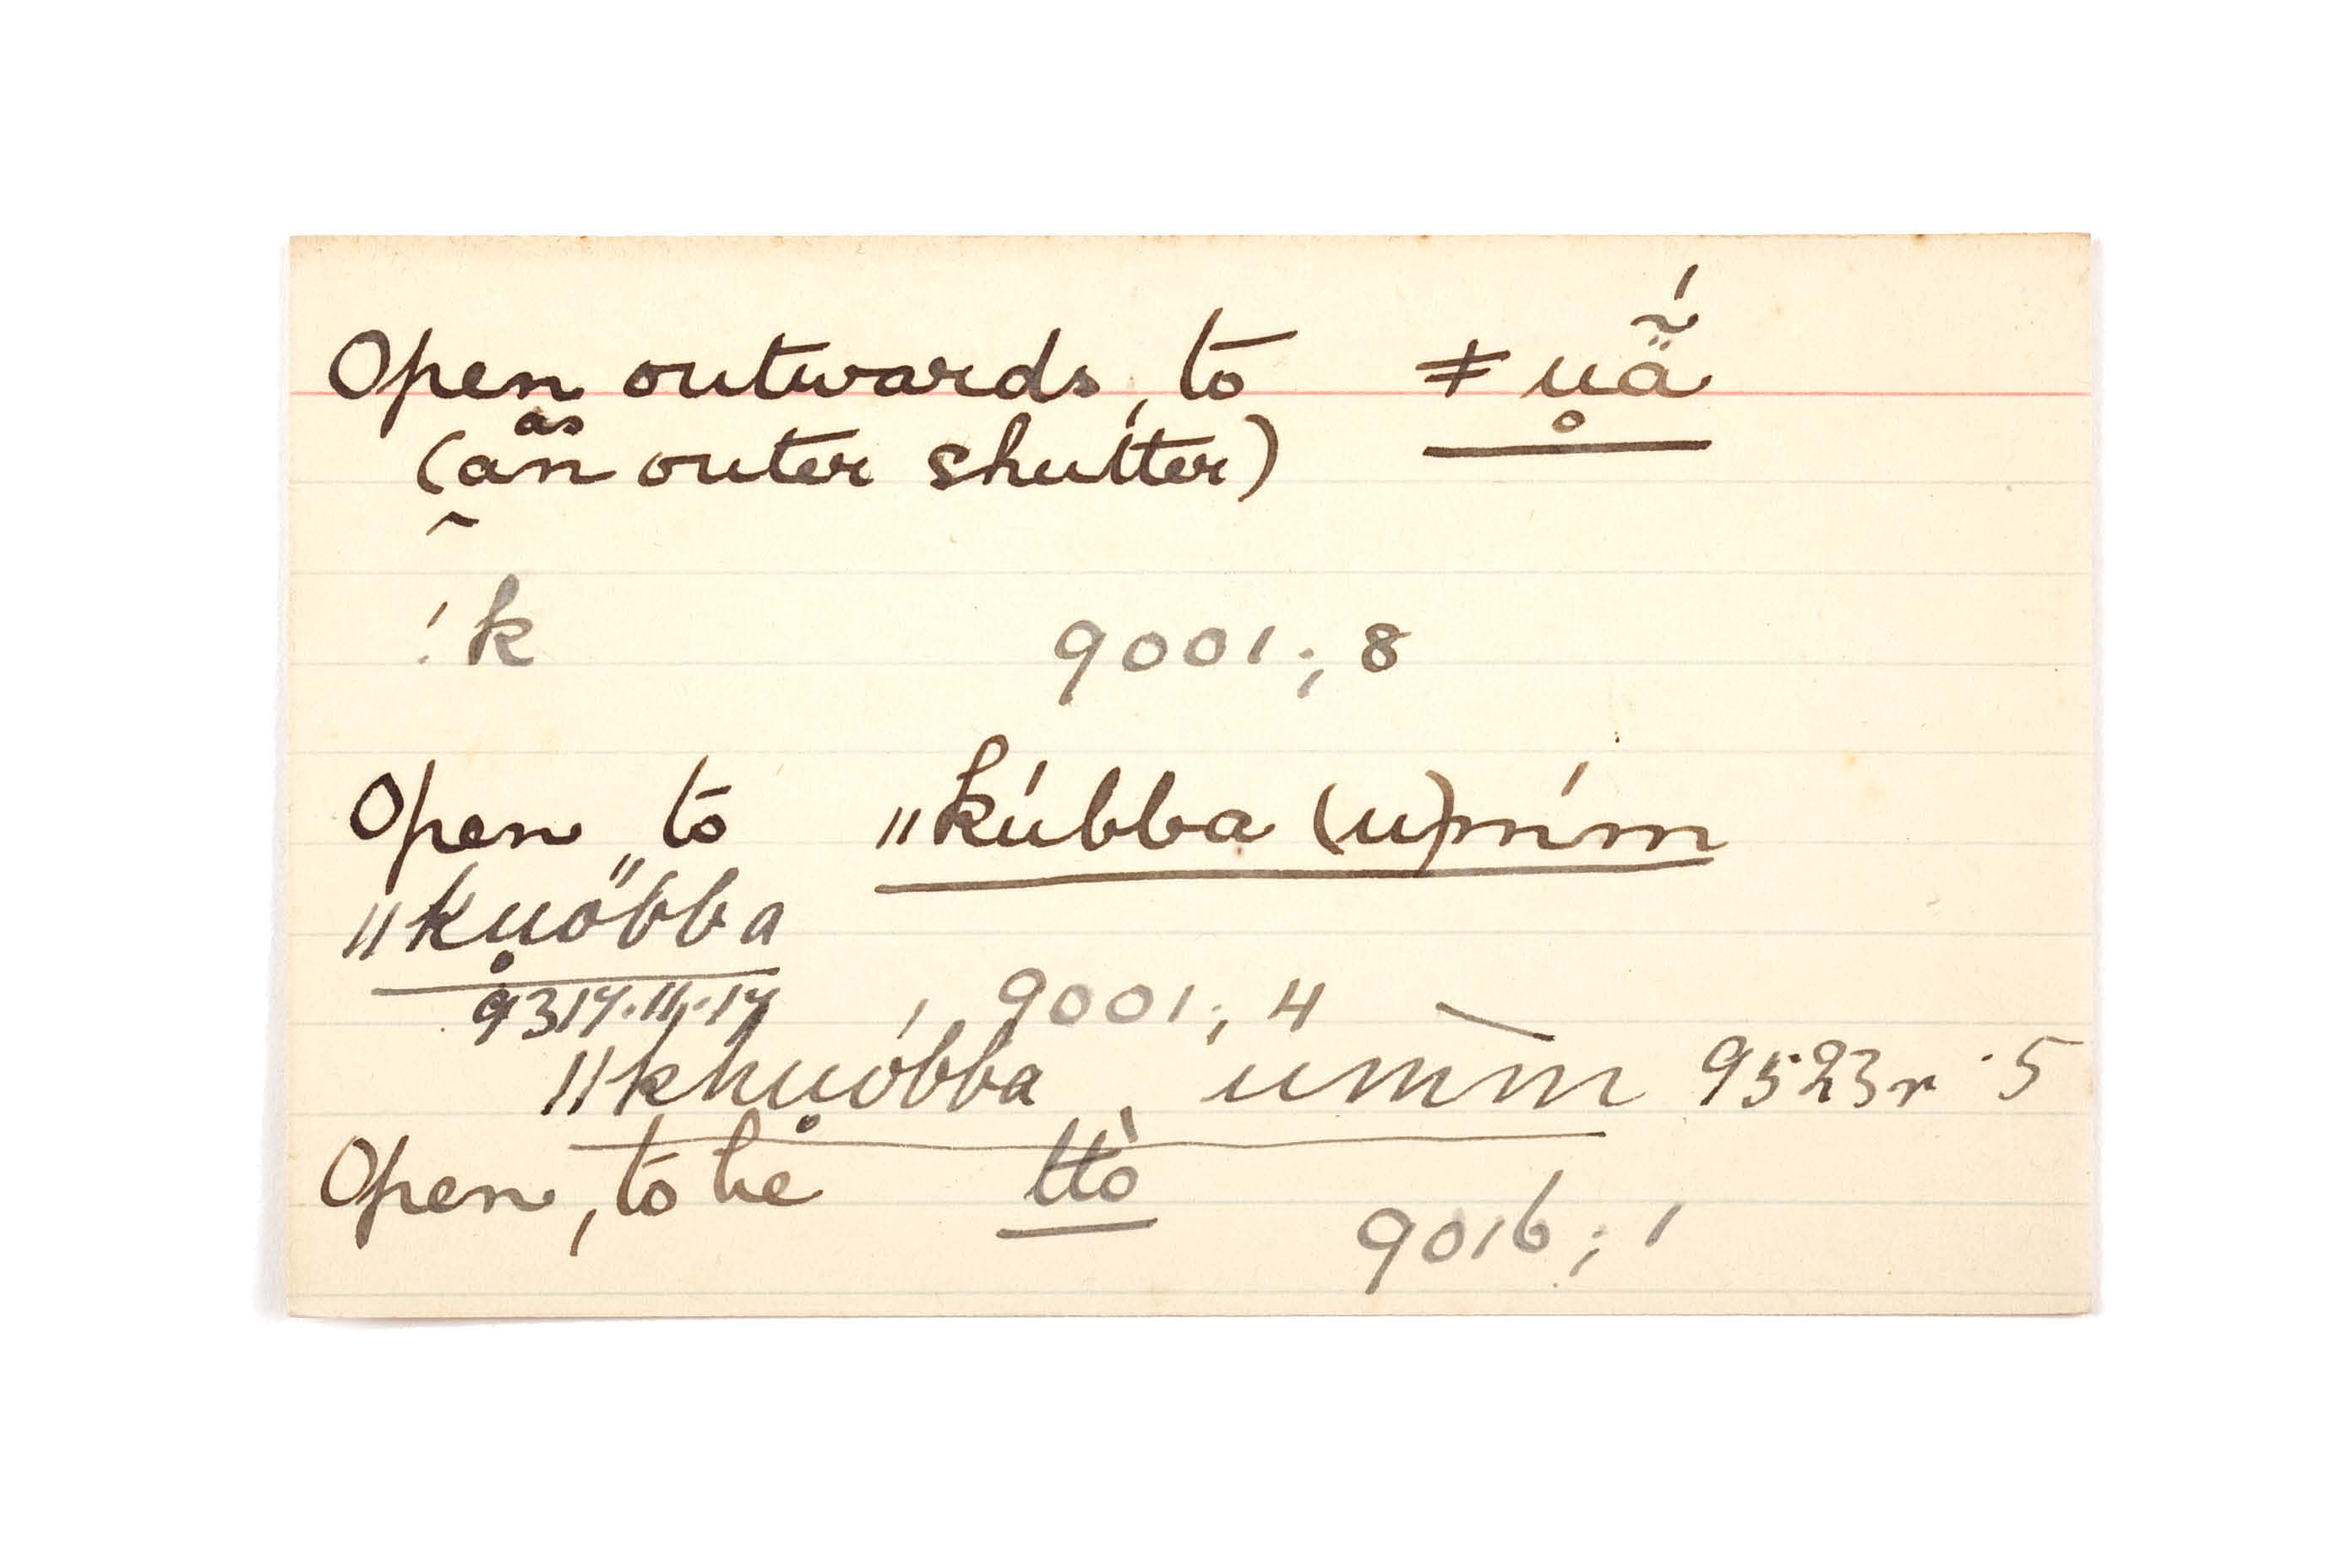 Open outwards, to ǂ ụ̊ä̃́
(as an outer shutter)
!k 9001; 8
Open, to ǁkúbba (u)mḿm
ǁku̥öbba
9317.11.17 9001; 4
ǁkhu̥óbba umm̀m 9523r.5
Open, to be ttò
9016; 1